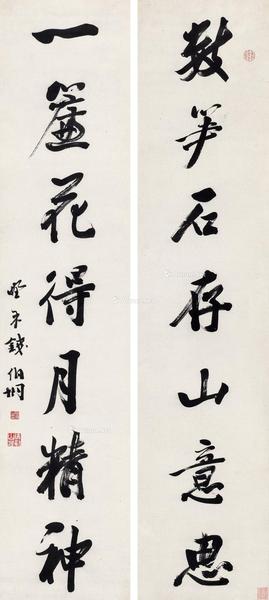 數笏石存山意思
一簾花得月精神
錢伯坰